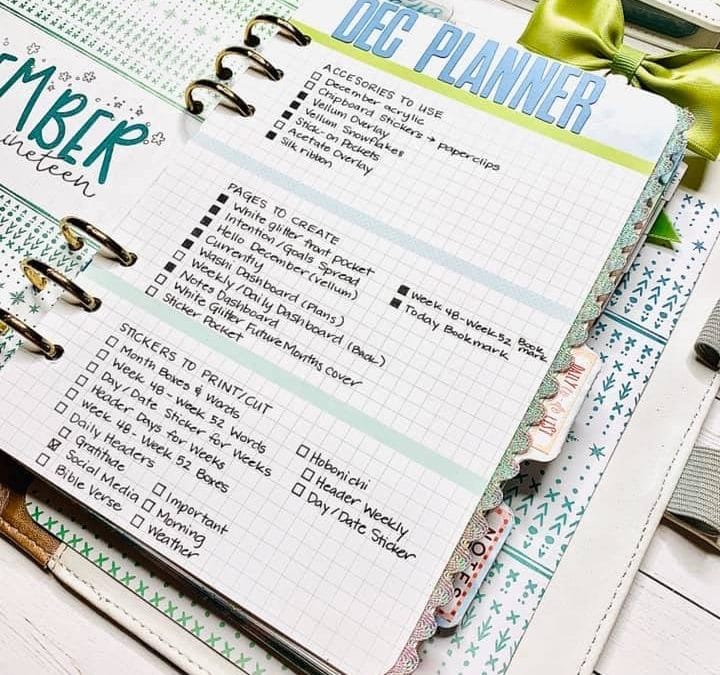 EMBER
ineteen
DEC PLANNER
ACCESORIES TO USE
December acrylic
Chipboard Stickers → paperclips
Vellum Overlay
Vellum Snowflakes
Stick-on Pockets
Acetate Overlay
Silk ribbon
PAGES TO CREATE
White glitter front pocket
Intention/Goals Spread
Hello December (vellum)
Currently
Washi Dashboard (Plans)
Weekly/Daily Dashboard (Back)
Notes Dashboard
White Glitter Future Months cover
Sticker Pocket
Week 48-Week 52 Book mark
Today Bookmark
STICKERS TO PRINT/CUT
Month Boxes & Words
Week 48 - Week 52 Words
Day/Date Sticker for Weeks
Header Days for Weeks
Week 48 - Week 52 Boxes
Daily Headers
Gratitude
Social Media
Bible Verse
Important
Morning
Weather
Hobonichi
Header Weekly
Day/Date Sticker
DAILY TO DO LIST
NOTES